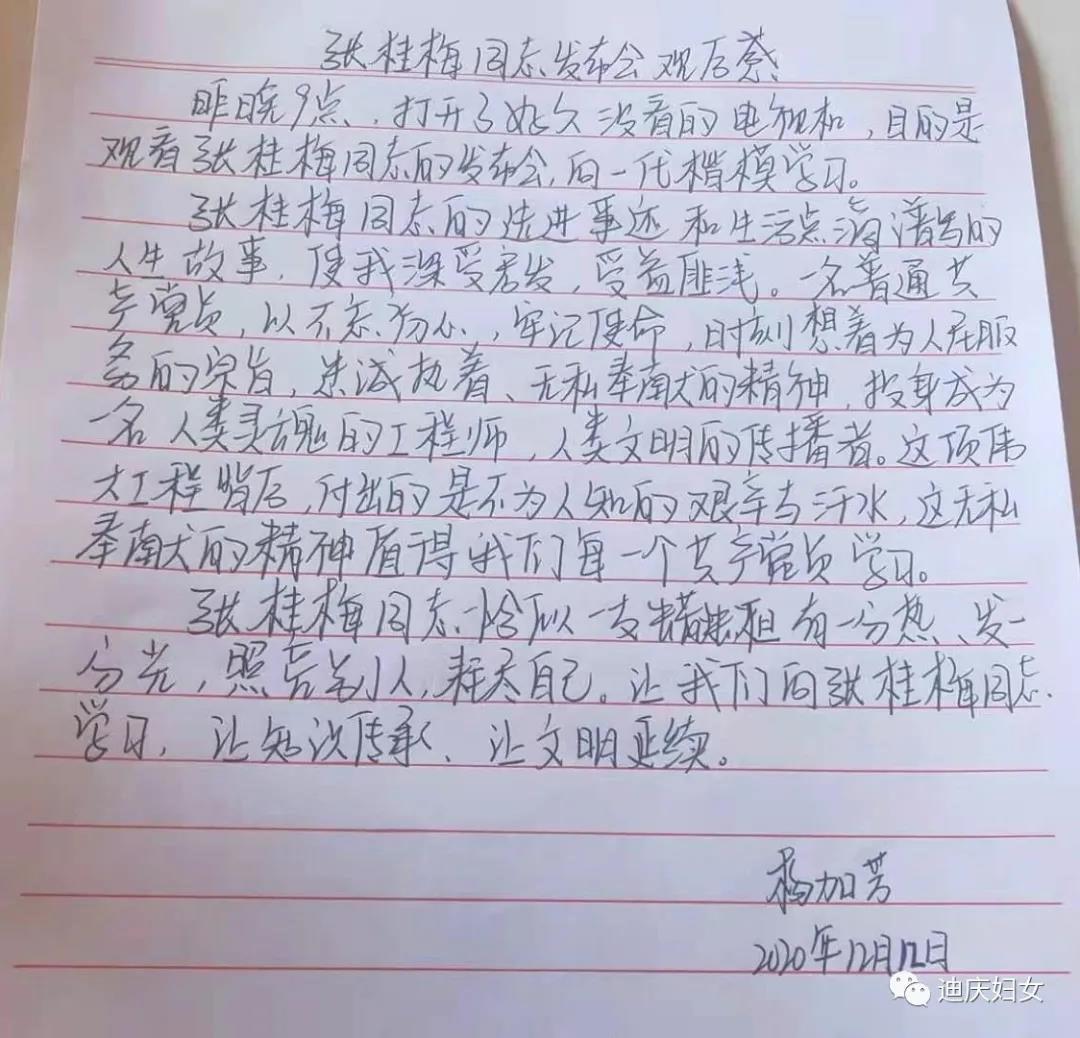 张桂梅同志发布会观后感
昨晚9点,打开了好久没看的电视机,目的是
观看张桂梅同志的发布会,向一代楷模学习。
张桂梅同志的先进事迹和生活点滴谱写的
人生故事,使我深受启发,受益匪浅。一名普通共
产党员,以不忘初心,牢记使命,时刻想着为人民服
务的宗旨,忠诚执着、无私奉献的精神,投身成为
一名人类灵魂的工程师,人类文明的传播者。这项伟
大工程背后,付出的是不为人知的艰辛与汗水,这无私
奉献的精神值得我们每一个共产党员学习。
张桂梅同志恰似一支蜡烛 有一分热、发一
分光,照亮别人,耗尽自己。让我们向张桂梅同志
学习,让知识传承、让文明延续。
杨加芳
2020年12月12日
迪庆妇女